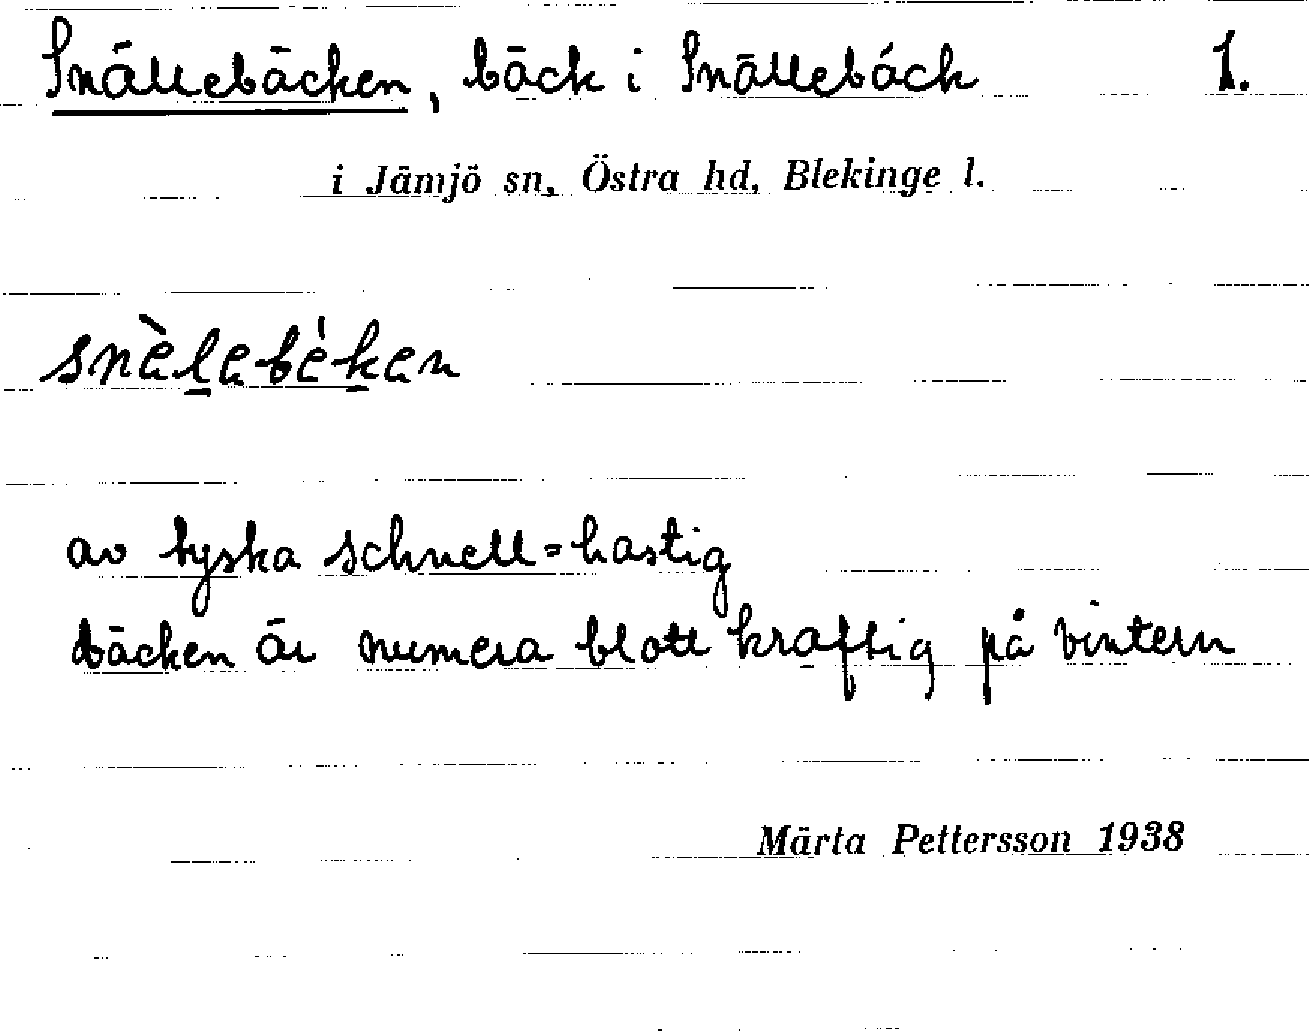 Snällebäcken, bäck i Snällebäck 1.
i Jämjö sn, Östra hd, Blekinge l.
snèlebéken
av tyska schnell = hastig
bäcken är numera blott kraftig på vintern
Märta Pettersson 1938